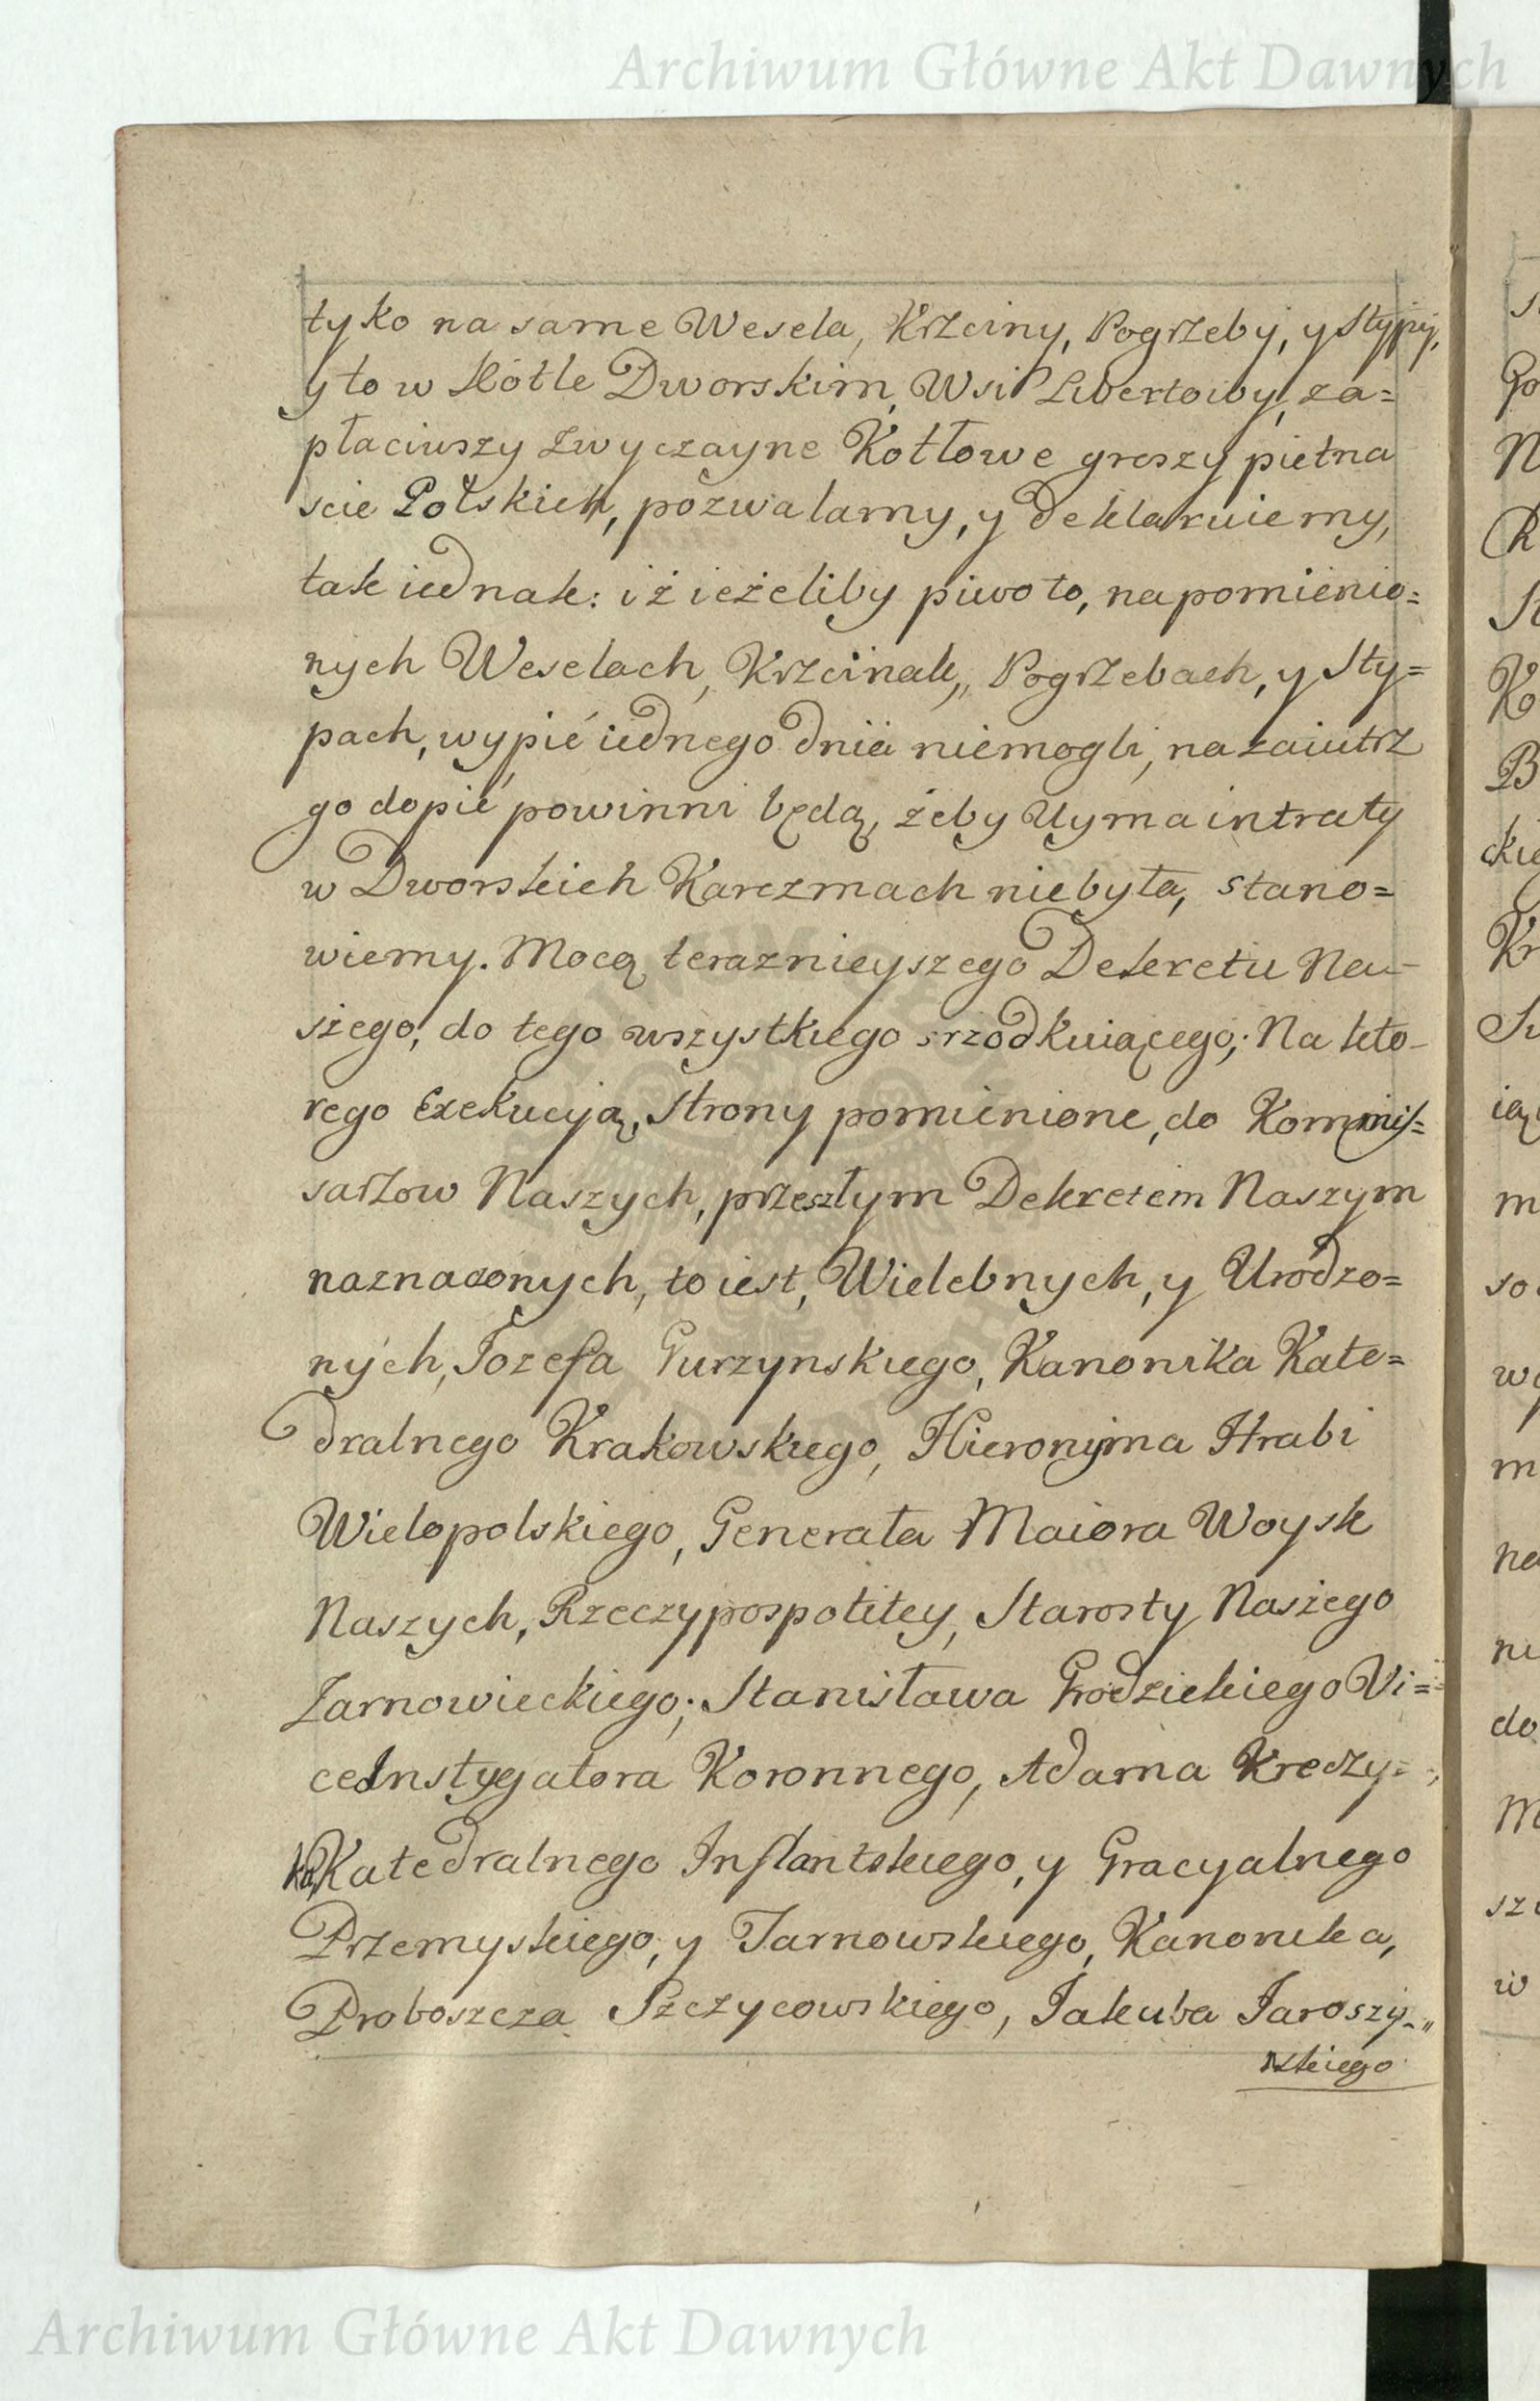 Archiwum Główne Akt Dawnych
tyko na same Wesela, Krzciny, Pogrzeby, y Stypy,
y to w Kotle Dworskim, Wsi Libertowy, za=
płaciwszy zwyczayne Kotłowe groszy pietna
scie Polskich, pozwalamy, y deklaruiemy,
tak iednak: iż ieżeliby piwo to, na pomienio=
nych Weselach, Krzcinak,, Pogrzebach, y Sty=
pach, wypić iednego dnia niemogli, nazaiutrz
go dopić powinni będą, żeby Uyma intraty
w Dworskich Karczmach niebyła, stano=
wiemy. Mocą teraznieyszego Dekretu Na-
szego, do tego wszystkiego srzodkuiącego; Na kto-
rego Exekucyją, Strony pomienione, do Kommis=
sarzow Naszych, przeszłym Dekretem Naszym
naznaczonych, to iest, Wielebnych, y Urodzo=
nych, Jozefa Gurzynskiego, Kanonika Kate=
dralnego Krakowskiego, Hieronyma Hrabi
Wielopolskiego, Generała Maiora Woysk
Naszych, Rzeczypospolitey, Starosty Naszego
Żarnowieckiego; Stanisława Grodzickiego Vi=
ceInstygatora Koronnego, Adama Kreczy=
ka, Katedralnego Inflantskiego, y Gracyalnego
Przemyskiego, y Tarnowskiego, Kanonika,
Proboszcza Szczycowskiego, Jakuba Jaroszy-"
nskiego
Archiwum Główne Akt Dawnych